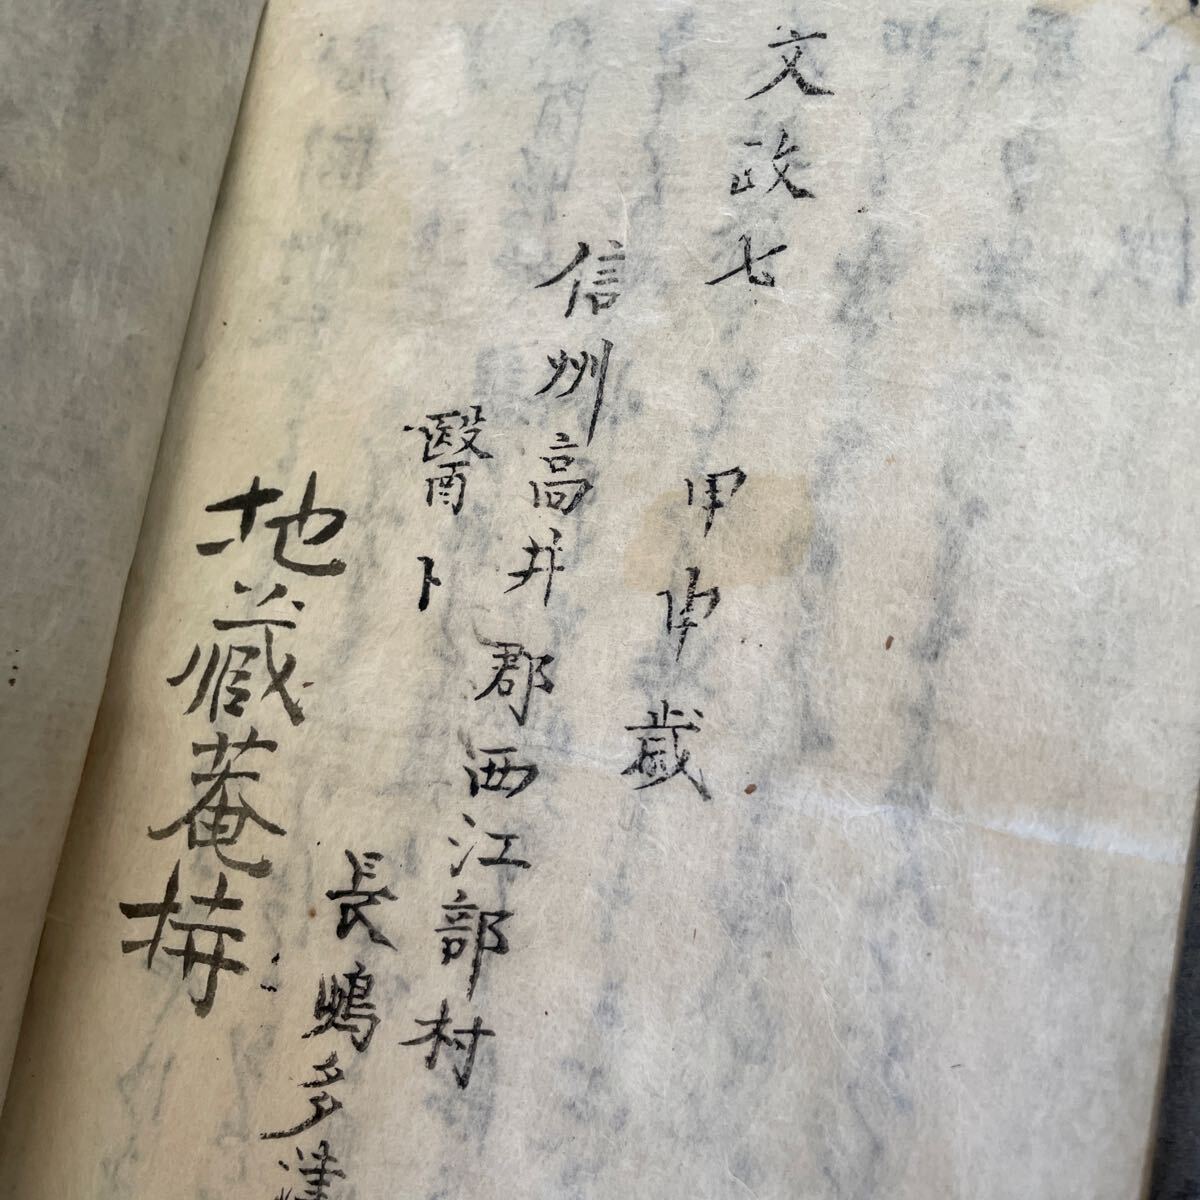 文政七甲申歳
信州高井郡西江部村
醫卜
長嶋多
地蔵菴